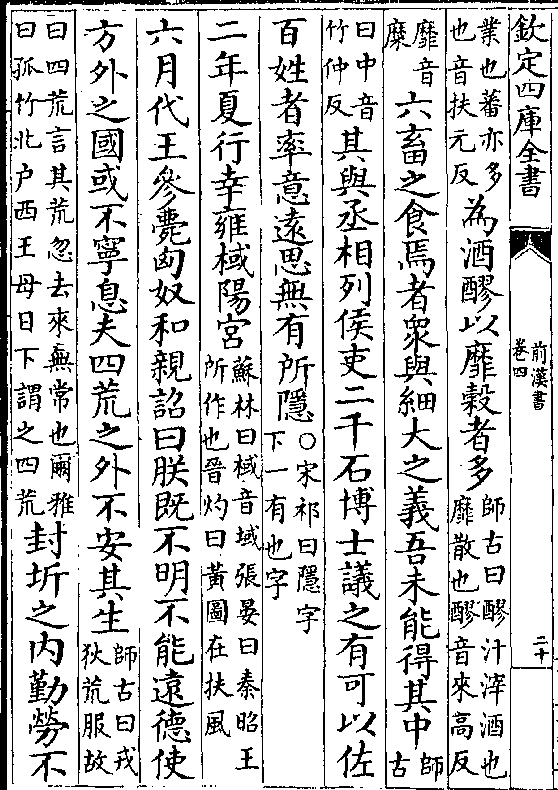 欽定四庫全書
前漢書
卷四
二十
業也蕃亦多
也音扶元反
為酒醪以靡穀者多
師古曰醪汁滓酒也
靡散也醪音來高反
靡音
糜
六畜之食焉者衆與細大之義吾未能得其中
師
古
曰中音
竹仲反
其與丞相列侯吏二千石博士議之有可以佐
百姓者率意遠思無有所隱
○宋祁曰隱字
下一有也字
二年夏行幸雍棫陽宫
蘇林曰棫音域張晏曰秦昭王
所作也晉灼曰黃圖在扶風
六月代王參薨匈奴和親詔曰朕既不明不能遠德使
方外之國或不寧息夫四荒之外不安其生
師古曰戎
狄荒服故
曰四荒言其荒忽去來無常也爾雅
曰孤竹北户西王母日下謂之四荒
封圻之内勤勞不